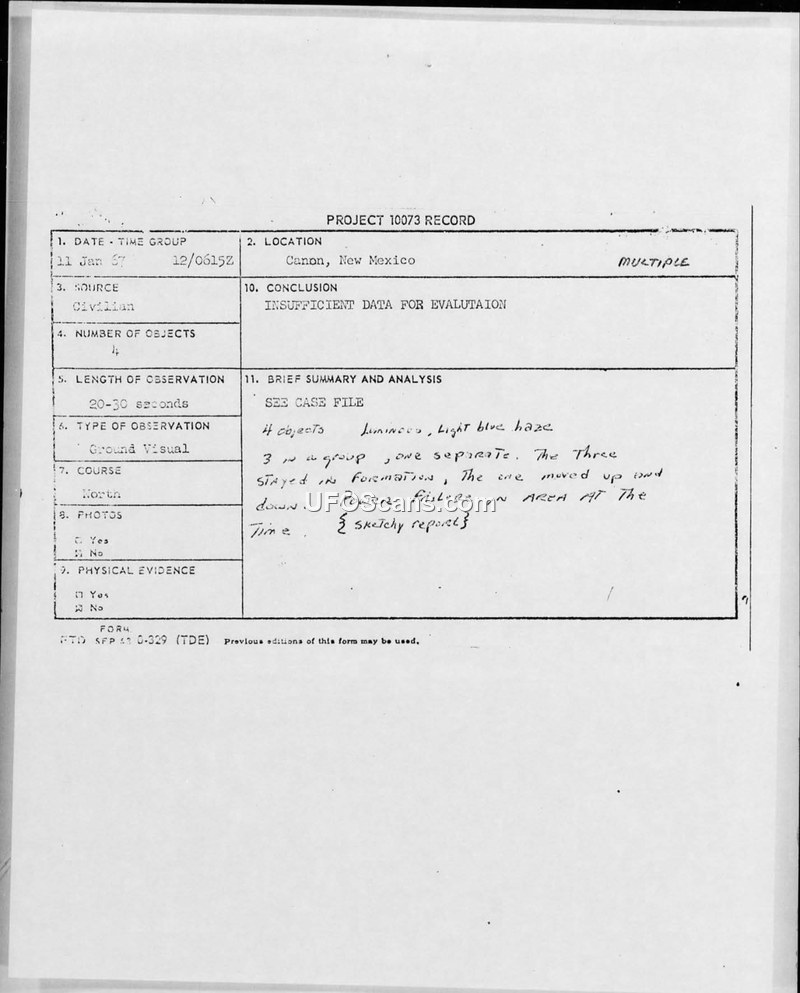 PROJECT 10073 RECORD
1. DATE - TIME GROUP
11 Jan 67 12/0615Z
2. LOCATION
Canon, New Mexico MULTIPLE
3. SOURCE
Civilian
10. CONCLUSION
INSUFFICIENT DATA FOR EVALUTAION
4. NUMBER OF OBJECTS
4
5. LENGTH OF OBSERVATION
20-30 seconds
11. BRIEF SUMMARY AND ANALYSIS
SEE CASE FILE
4 objects luminous, Light blue haze
3 in a group, one separate. The Three
stayed in formation, The one moved up and
down. in AREA AT The
Time. {sketchy report}
6. TYPE OF OBSERVATION
Ground Visual
7. COURSE
North
8. PHOTOS
□ Yes
☒ No
9. PHYSICAL EVIDENCE
□ Yes
☒ No
FORM
FTD SEP 63 0-329 (TDE) Previous editions of this form may be used.
UFOScans.com